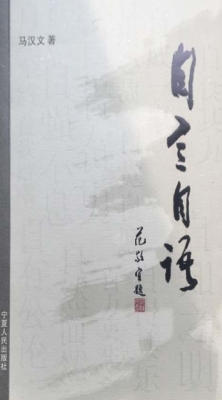 马汉文 著
自言自语
范敬宜题
宁夏人民出版社